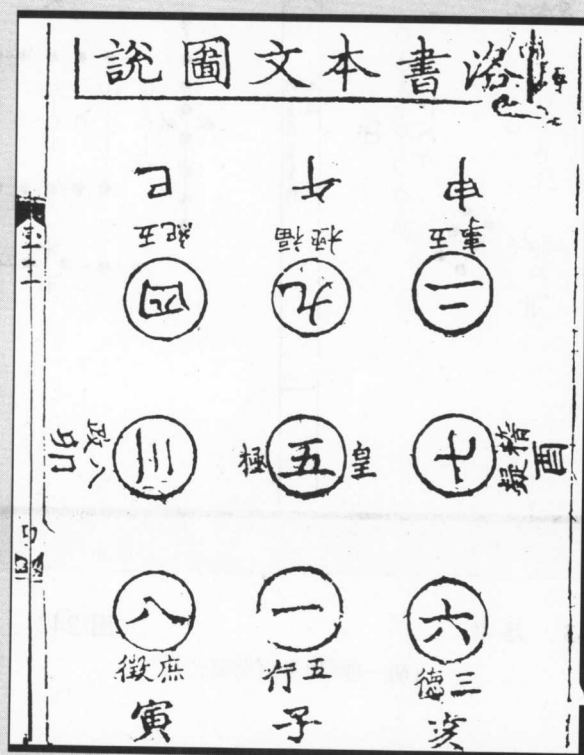 洛書本文圖說
申 午 巳
五事 福極 五紀
二 九 四
酉 稽疑 七 皇極 五 三 八政 卯
六 一 八
三德 五行 庶徵
亥 子 寅